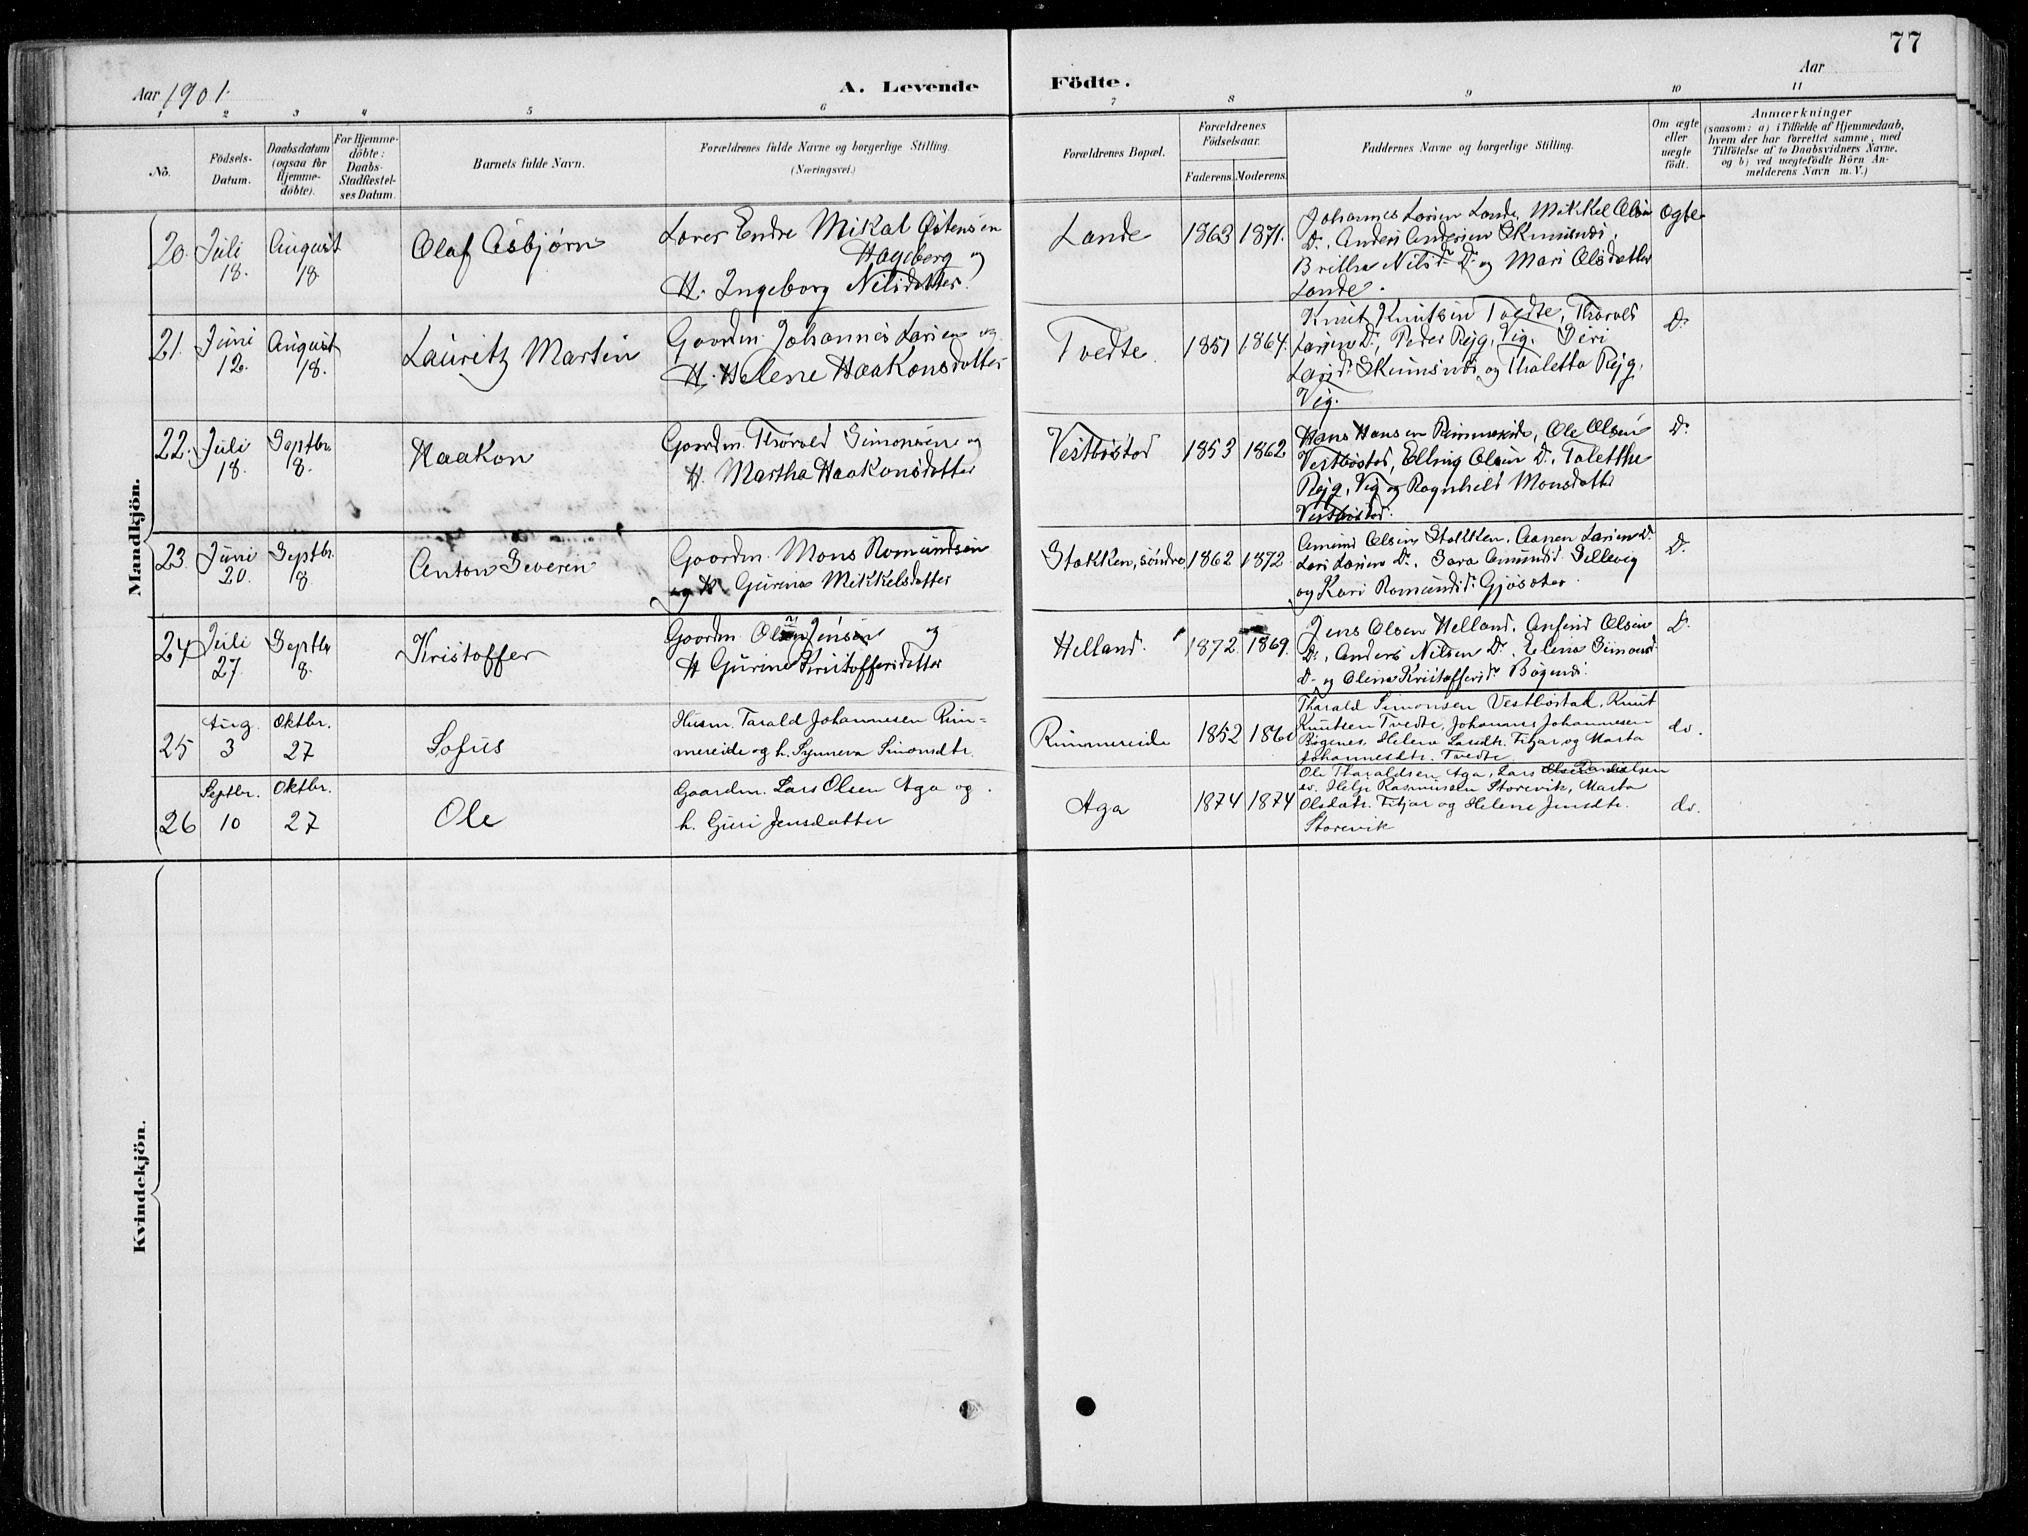 77
Aar 1901.
A. Levende Födte.
Aar
1 2 3 4 5 6 7 8 9 10 11
No.
Födsels-Datum.
Daabsdatum (ogsaa for Hjemme-döbte).
For Hjemme-döbte: Daabs-Stadfæstel-ses Datum.
Barnets fulde Navn.
Forældrenes fulde Navne og borgerlige Stilling. (Næringsvei.)
Forældrenes Bopæl.
Forældrenes Födselsaar.
Faderens. Moderens.
Faddernes Navne og borgerlige Stilling.
Om ægte eller uægte födt.
Anmærkninger
(saasom: a) i Tilfælde af Hjemmedaab,
hvem der har forrettet samme, med
Tilföielse af to Daabsvidners Navne,
og b) ved uægtefödte Börn An-
melderens Navn m. V.)
Mandkjön.
20. Juli 18. August 18. Olaf Asbjørn
Lærer Endre Mikal Østensen
Hageberg og
H. Ingeborg Nilsdatter.
Lande 1863 1871.
Johannes Larsen Lande, Mikkel Olsen
Do, Anders Andersen Skumsnes,
Britha Nilsdr Do og Mari Olsdatter
Lande.
Ægte
21. Juni 12. August 18. Lauritz Martin
Gaardm. Johannes Larsen og
H. Helene Haakonsdatter
Tvedte. 1851 1864.
Knut Knutsen Tvedte, Thorvald
Larsen Do, Peder Rejg, Vig. Siri
Larsdr Skumsnes og Thaletta Rejg,
Vig.
Do
22. Juli 18. Septbr. 8. Haakon
Gaardm. Thorvald Simonsen og
H. Martha Haakonsdatter
Vestbøstad 1853 1862
Hans Hansen Rimmereide, Ole Olsen
Vestbøstad, Elling Olsen Do, Talettha
Rejg, Vig og Ragnhild Monsdatter
Vestbøstad.
Do
23. Juni 20. Septbr. 8. Anton Severin
Gaardm. Mons Romundsen
og H Gurina Mikkelsdatter
Stokken, søndre 1862 1872.
Amund Olsen Stokken, Aanen Larsen Do
Lars Larsen Do, Sara Amundsdr Sellevig
og Kari Romundsdr Gjøsæter.
Do
24 Juli 27. Septbr 8. Kristoffer
Gaardm. Ole Jensen og
H Gurine Kristoffersdatter
Helland. 1872 1869.
Jens Olsen Helland, Anfind Olsen
Do, Anders Nilsen Do, Elena Simonsd.
Do og Olena Kristoffersdr Bøgenes.
Do
25 Aug. 3 Oktbr. 27 Sofus
Husm. Tarald Johannesen Rim-
mereide og h. Synneva Simonsdtr.
Rimmereide 1852 1860
Tharald Simonsen Vestbøstad, Knut
Knutsen Tvedte, Johannes Johannesen
Bøgenes, Helene Larsdtr. Fitjar og Marta
Johannesdtr. Tvedte
do.
26 Septbr. 10 Oktbr. 27 Ole
Gaardm. Lars Olsen Aga og
h. Guri Jensdatter
Aga 1874 1874
Ole Tharaldsen Aga, Lars Danielsen
do. Helje Rasmussen Storevik, Marta
Olsdatr. Fitjar og Helene Jensdtr.
Storevik
do.
Kvindekjön.